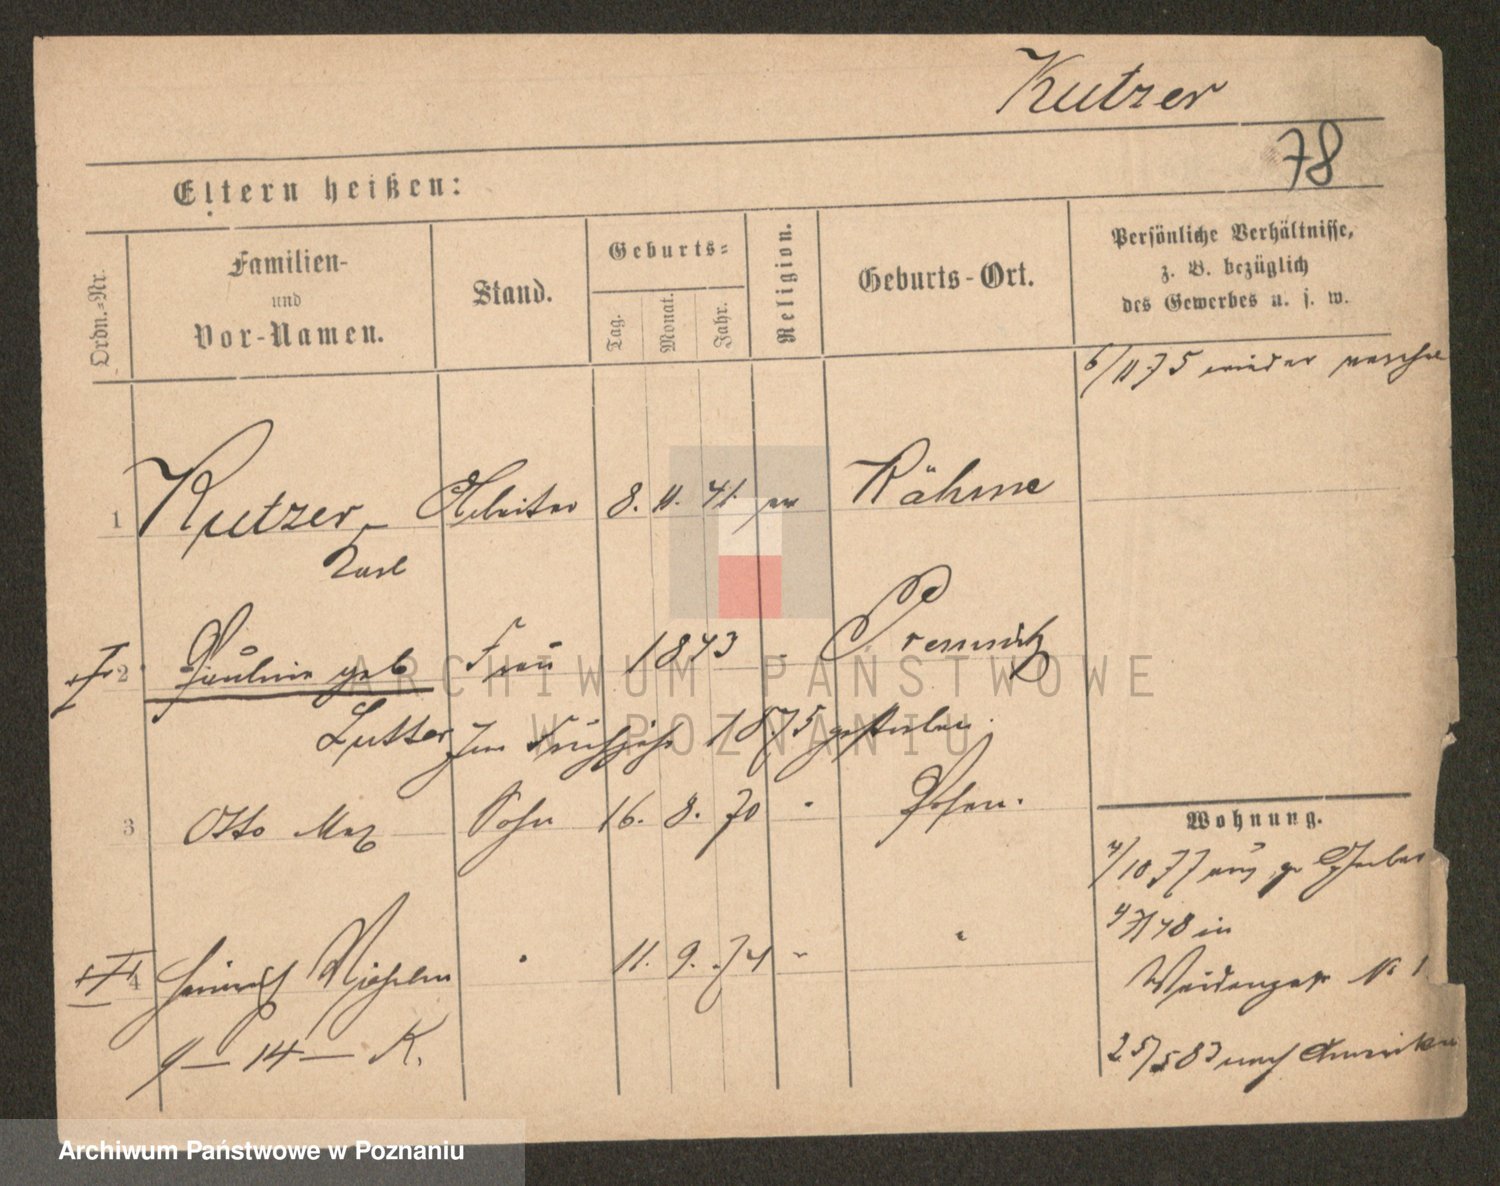 Kutzer
78
Eltern heißen:
Ordn.=Nr.
Familien-
und
Vor-Namen.
Stand.
Geburts=
Tag.
Monat.
Jahr.
Religion.
Geburts-Ort.
Persönliche Verhältnisse,
z. B. bezüglich
des Gewerbes u. s. w.
6/11 75 wieder
1 Kutzer Arbeiter 8. 11. 41. ev Rähme
Karl
2 Pauline geb Frau 1843 -
Lutter Im Frühjahr 1875 gestorben.
3 Otto Max Sohn 16. 8. 70 " Posen.
Wohnung.
4/10 77 aus gr Gerber
4/4 78 in
4 Heinrich Wilhelm " 11. 9. 74 " "
Weidengass No 1
9 — 14 — K.
25/5 83 nach Amerika
ARCHIWUM PAŃSTWOWE
W POZNANIU
Archiwum Państwowe w Poznaniu